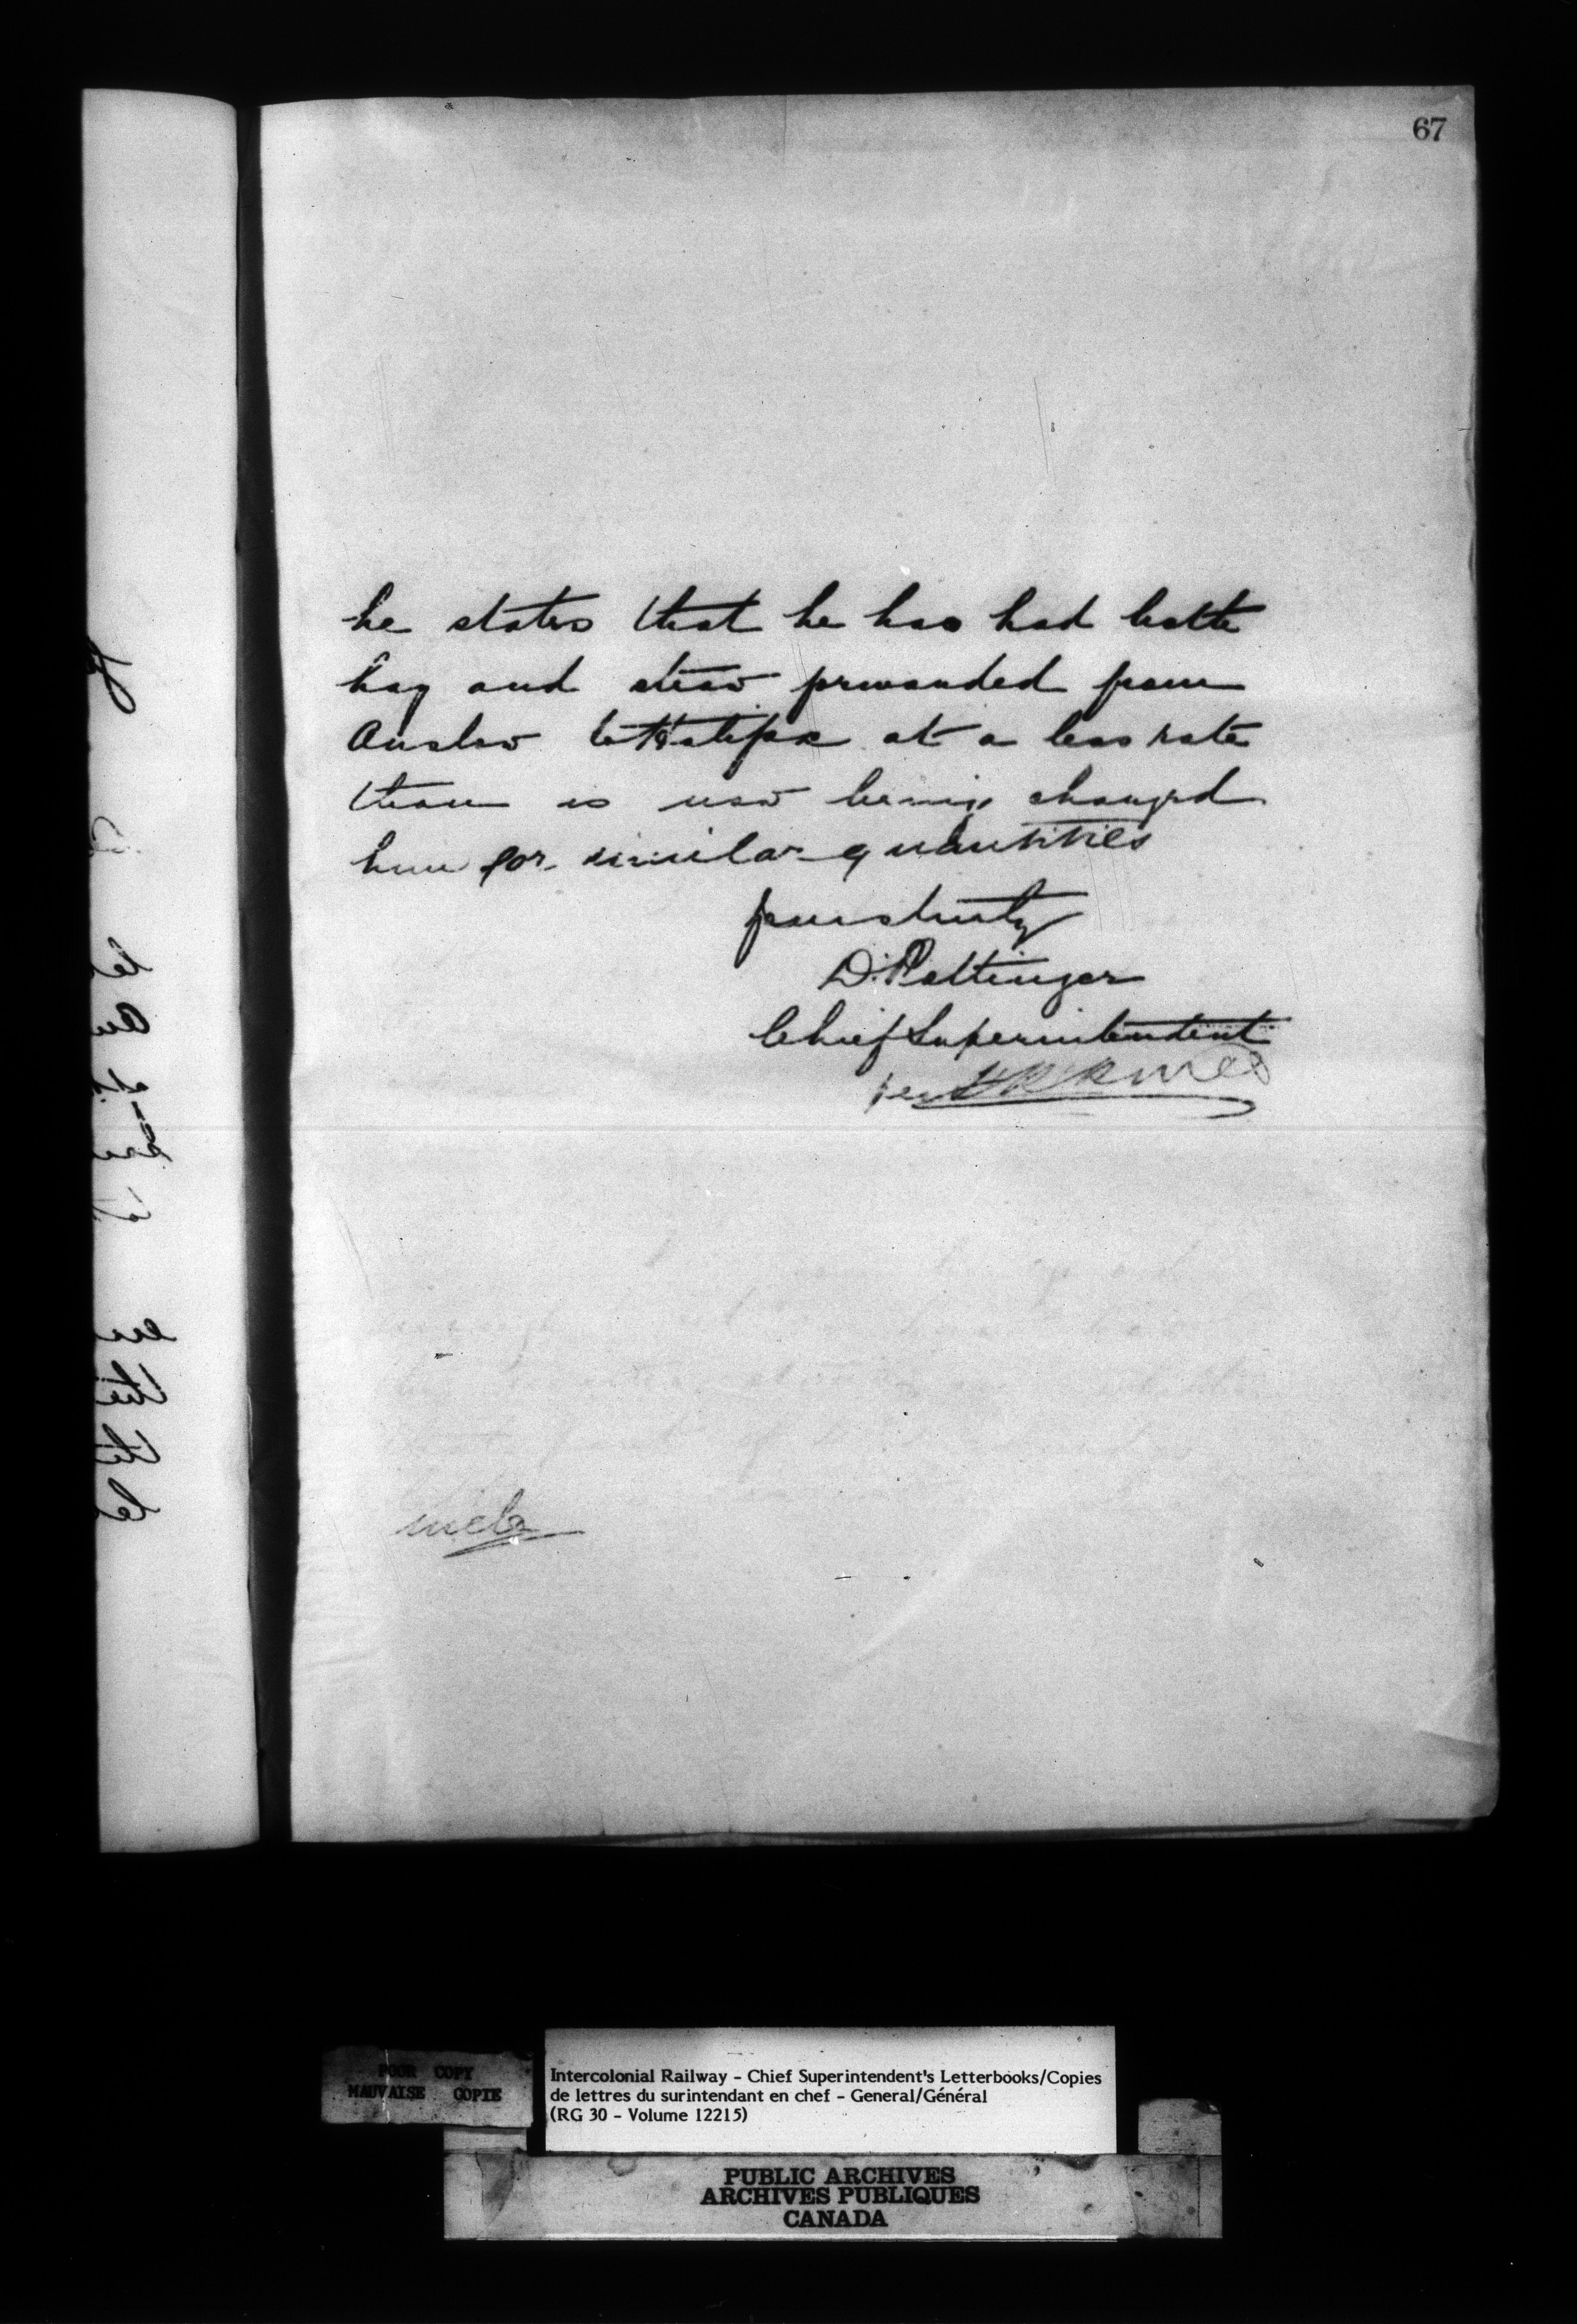 67
he states that he has had both
hay and straw forwarded from
Onslow to Halifax at a less rate
than is now being charged
him for similar quantities
yours truly
D. Pottinger
Chief Superintendent
per
POOR COPY
MAUVAISE COPIE
Intercolonial Railway - Chief Superintendent's Letterbooks/Copies
de lettres du surintendant en chef - General/Général
(RG 30 - Volume 12215)
PUBLIC ARCHIVES
ARCHIVES PUBLIQUES
CANADA